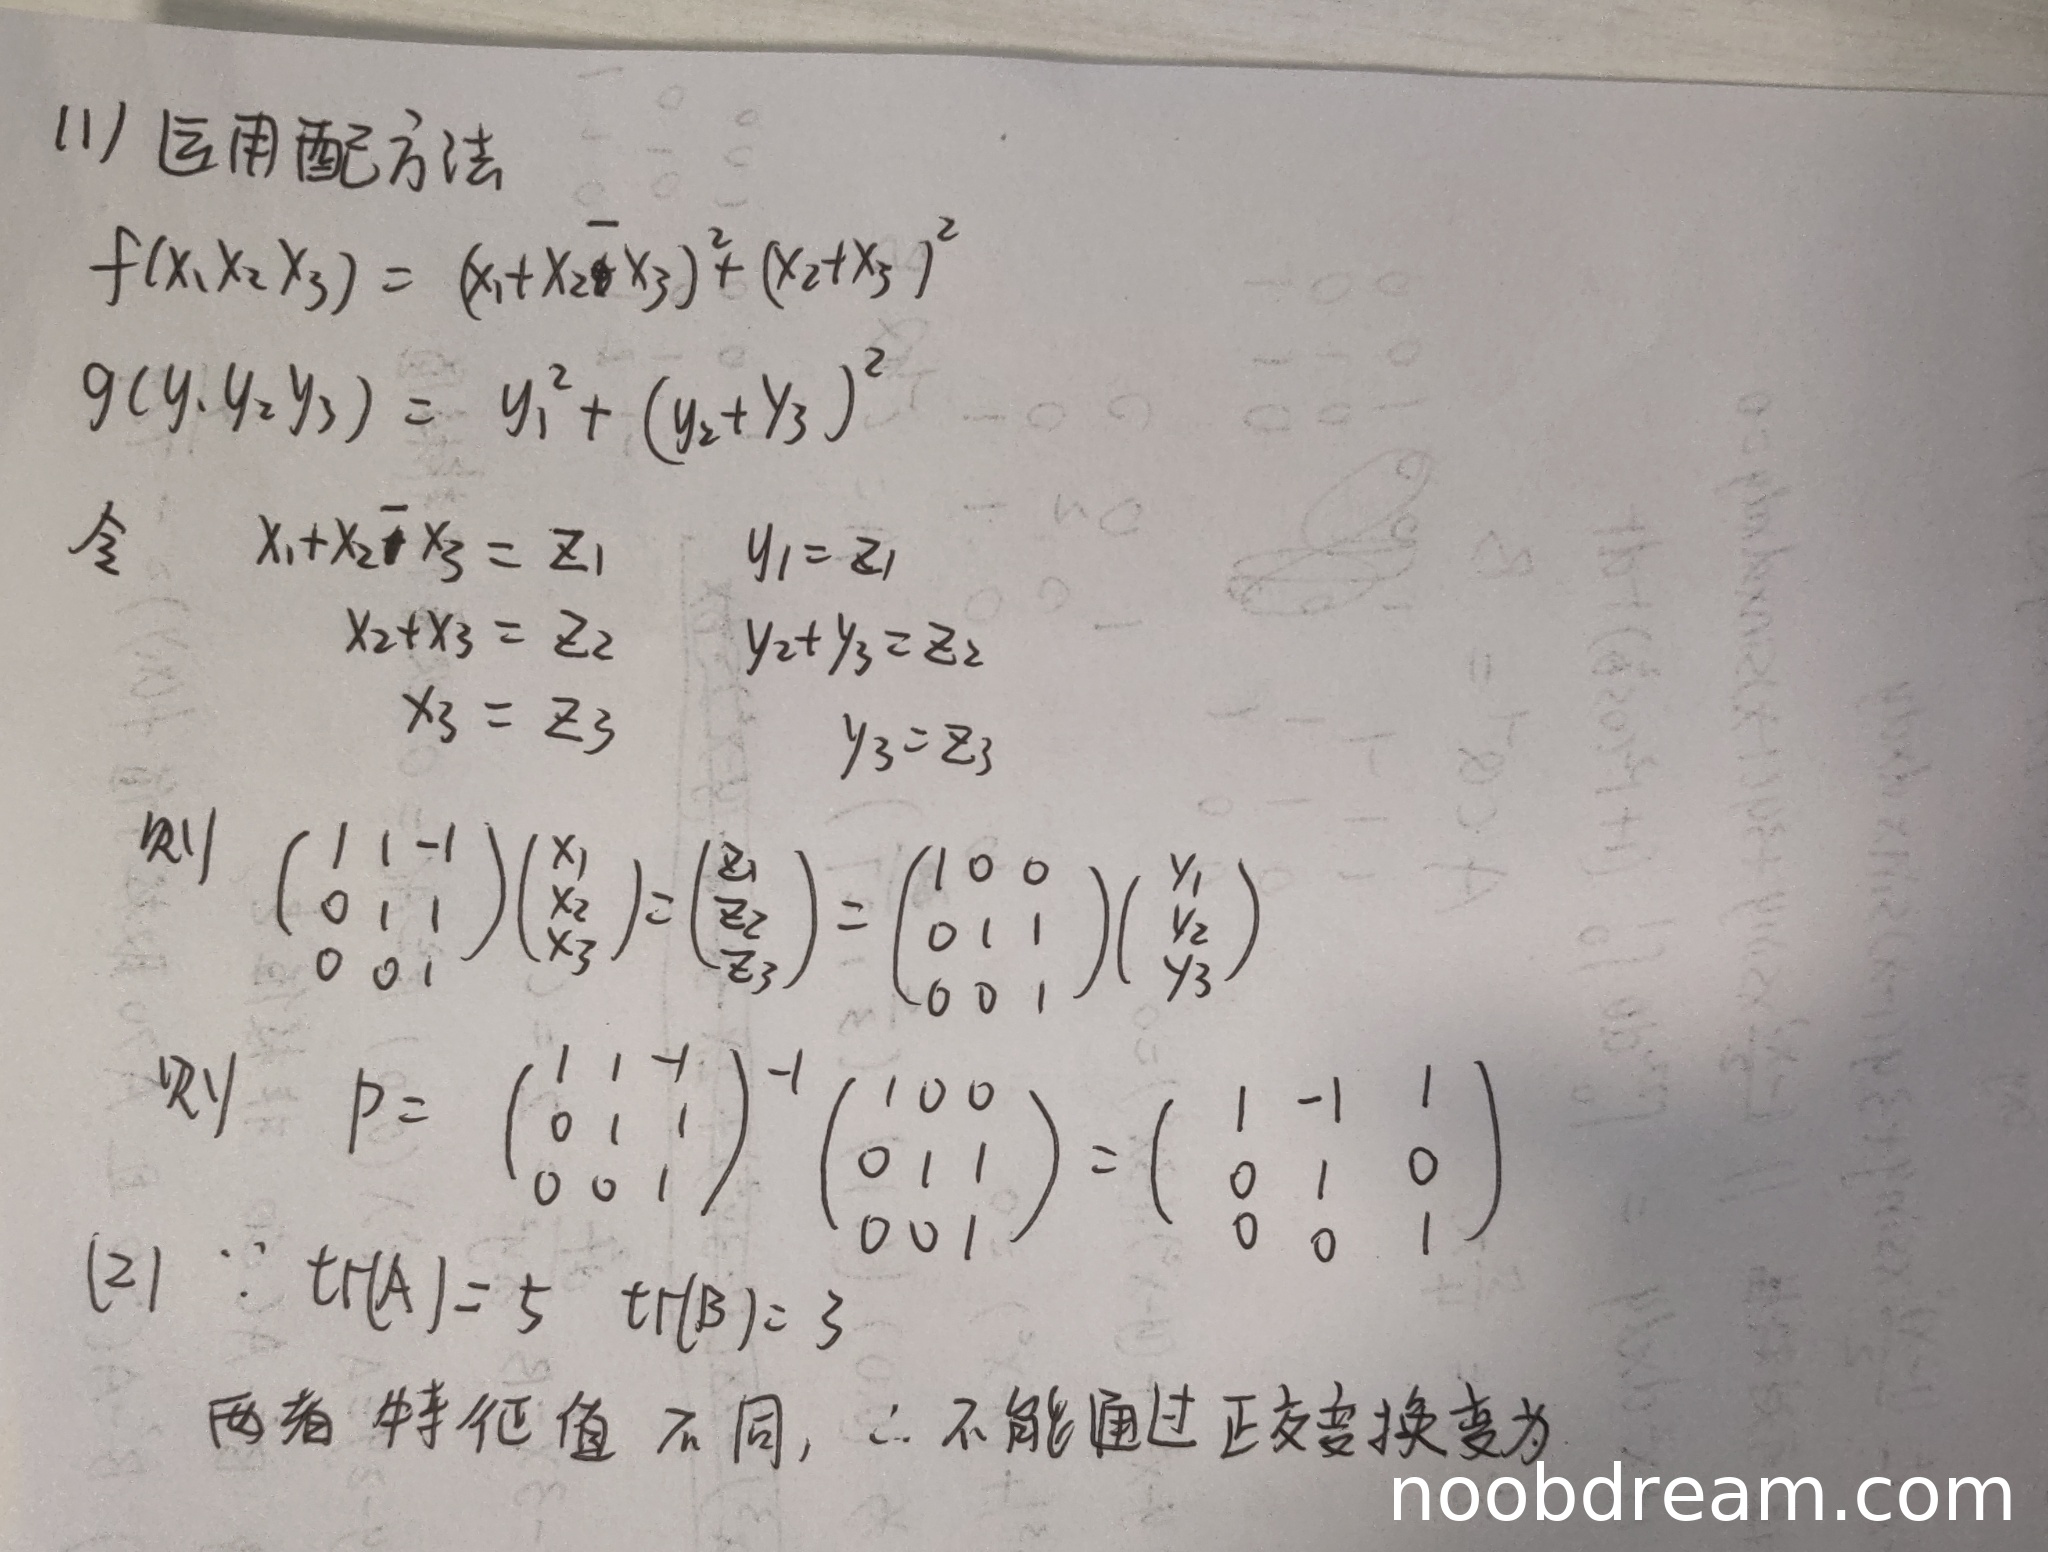 (1) 运用配方法
f(x₁x₂x₃) = (x₁+x₂-x₃)²+(x₂+x₃)²
g(y₁y₂y₃) = y₁²+(y₂+y₃)²
令 x₁+x₂-x₃ = z₁ y₁=z₁
x₂+x₃ = z₂ y₂+y₃=z₂
x₃ = z₃ y₃=z₃
则 (1 1 -1; 0 1 1; 0 0 1)(x₁; x₂; x₃)=(z₁; z₂; z₃)=(1 0 0; 0 1 1; 0 0 1)(y₁; y₂; y₃)
则 P= (1 1 -1; 0 1 1; 0 0 1)⁻¹(1 0 0; 0 1 1; 0 0 1)=(1 -1 1; 0 1 0; 0 0 1)
(2) ∵ tr(A)=5 tr(B)=3
两者特征值不同, ∴不能通过正交变换变为
noobdream.com